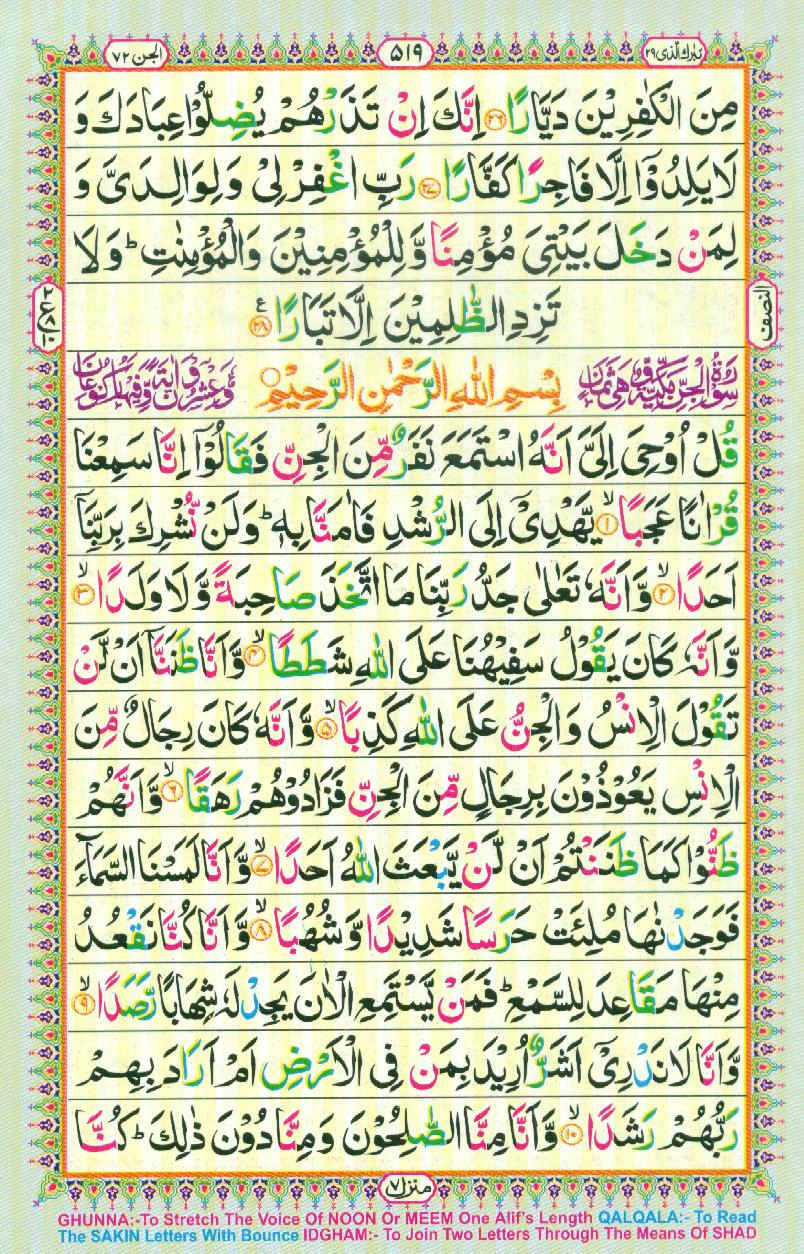 تبٰرك الذی ۲۹
۵۱۹
الجن ۷۲
مِنَ الْكٰفِرِیْنَ دَیَّارًا ۝۲۶ اِنَّكَ اِنْ تَذَرْهُمْ یُضِلُّوْا عِبَادَكَ وَ
لَا یَلِدُوْۤا اِلَّا فَاجِرًا كَفَّارًا ۝۲۷ رَبِّ اغْفِرْ لِیْ وَ لِوَالِدَیَّ وَ
لِمَنْ دَخَلَ بَیْتِیَ مُؤْمِنًا وَّ لِلْمُؤْمِنِیْنَ وَ الْمُؤْمِنٰتِ ؕ وَ لَا
تَزِدِ الظّٰلِمِیْنَ اِلَّا تَبَارًا ۝۲۸ ع
النصف
سُوْرَةُ الْجِنِّ مَكِّیَّةٌ وَّهِیَ ثَمَانٍ
بِسْمِ اللّٰهِ الرَّحْمٰنِ الرَّحِیْمِ
وَّعِشْرُوْنَ اٰیَةً وَّفِیْهَا رُكُوْعَانِ
قُلْ اُوْحِیَ اِلَیَّ اَنَّهُ اسْتَمَعَ نَفَرٌ مِّنَ الْجِنِّ فَقَالُوْۤا اِنَّا سَمِعْنَا
قُرْاٰنًا عَجَبًا ۝۱ۙ یَّهْدِیْۤ اِلَی الرُّشْدِ فَاٰمَنَّا بِهٖ ؕ وَ لَنْ نُّشْرِكَ بِرَبِّنَاۤ
اَحَدًا ۝۲ۙ وَّ اَنَّهٗ تَعٰلٰی جَدُّ رَبِّنَا مَا اتَّخَذَ صَاحِبَةً وَّ لَا وَلَدًا ۝۳ۙ
وَّ اَنَّهٗ كَانَ یَقُوْلُ سَفِیْهُنَا عَلَی اللّٰهِ شَطَطًا ۝۴ۙ وَّ اَنَّا ظَنَنَّاۤ اَنْ لَّنْ
تَقُوْلَ الْاِنْسُ وَ الْجِنُّ عَلَی اللّٰهِ كَذِبًا ۝۵ۙ وَّ اَنَّهٗ كَانَ رِجَالٌ مِّنَ
الْاِنْسِ یَعُوْذُوْنَ بِرِجَالٍ مِّنَ الْجِنِّ فَزَادُوْهُمْ رَهَقًا ۝۶ۙ وَّ اَنَّهُمْ
ظَنُّوْا كَمَا ظَنَنْتُمْ اَنْ لَّنْ یَّبْعَثَ اللّٰهُ اَحَدًا ۝۷ۙ وَّ اَنَّا لَمَسْنَا السَّمَآءَ
فَوَجَدْنٰهَا مُلِئَتْ حَرَسًا شَدِیْدًا وَّ شُهُبًا ۝۸ۙ وَّ اَنَّا كُنَّا نَقْعُدُ
مِنْهَا مَقَاعِدَ لِلسَّمْعِ ؕ فَمَنْ یَّسْتَمِعِ الْاٰنَ یَجِدْ لَهٗ شِهَابًا رَّصَدًا ۝۹ۙ
وَّ اَنَّا لَا نَدْرِیْۤ اَشَرٌّ اُرِیْدَ بِمَنْ فِی الْاَرْضِ اَمْ اَرَادَ بِهِمْ
رَبُّهُمْ رَشَدًا ۝۱۰ۙ وَّ اَنَّا مِنَّا الصّٰلِحُوْنَ وَ مِنَّا دُوْنَ ذٰلِكَ ؕ كُنَّا
منزل ۷
GHUNNA:-To Stretch The Voice Of NOON Or MEEM One Alif's Length QALQALA:- To Read
The SAKIN Letters With Bounce IDGHAM:- To Join Two Letters Through The Means Of SHAD